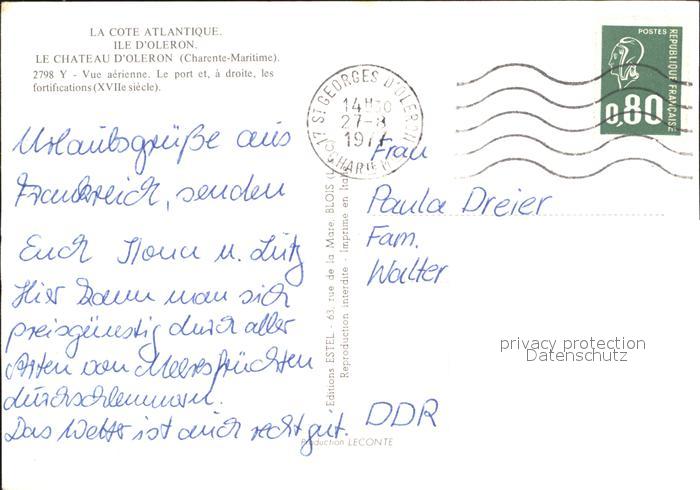 LA COTE ATLANTIQUE.
ILE D'OLERON.
LE CHATEAU D'OLERON (Charente-Maritime).
2798 Y - Vue aérienne. Le port et, à droite, les
fortifications (XVIIe siècle).
Urlaubsgrüße aus
Frankreich, senden
Euch Ilona u. Lutz
Hier kann man sich
preisgünstig durch aller
Arten von Meeresfrüchten
durchschlemmern.
Das Wetter ist auch recht gut.
Editions ESTEL - 63, rue de la Mare, BLOIS
Reproduction interdite - Imprimé en
Production LECONTE
17 ST GEORGES D'OLERON
14H30
27-8
197
POSTES
REPUBLIQUE FRANÇAISE
0,80
Frau
Paula Dreier
Fam.
Walter
privacy protection
Datenschutz
DDR